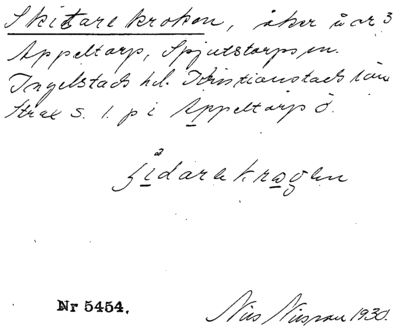 Skittarekroken, åker å or 3
Appeltorp, Spjutstorps sn.
Ingelstads hd. Kristianstads län
strax s. l. p i Appeltorp ö.
šidarekragen
Nr 5454.
Nils Nilsson 1930.